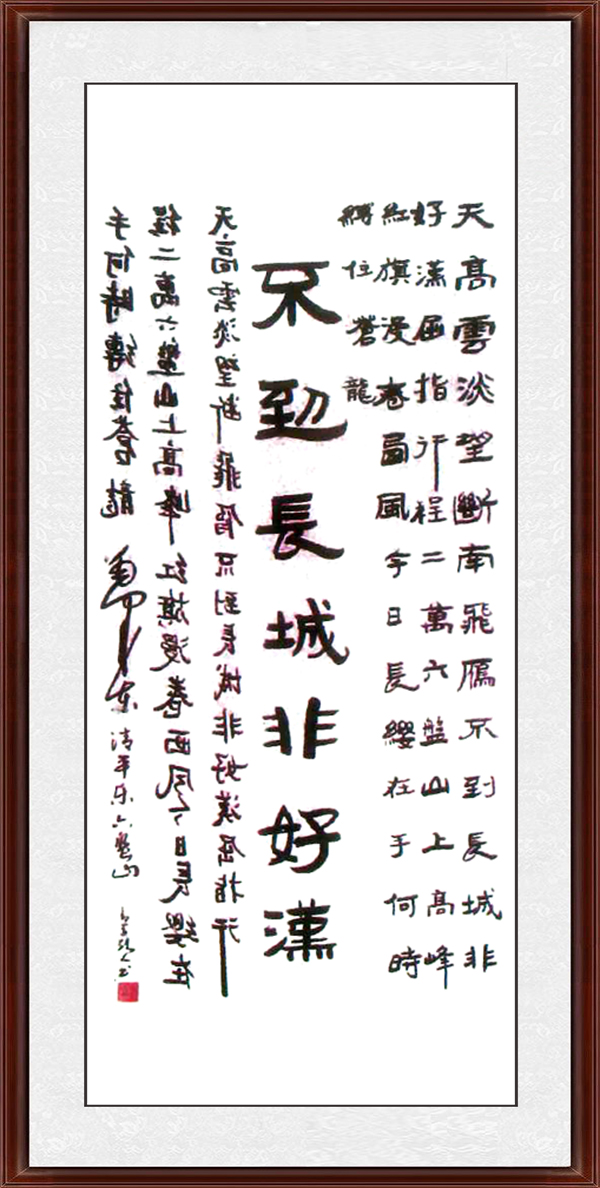 天高雲淡望斷南飛雁不到長城非
好漢屈指行程二萬六盤山上高峰
紅旗漫卷西風今日長纓在手何時
縛住蒼龍
不到長城非好漢
天高雲淡望断飛雁不到長城非好漢屈指行
程二萬六盤山上高峰红旗漫卷西风今日長缨在
手何時縛住苍龍 清平乐六盘山